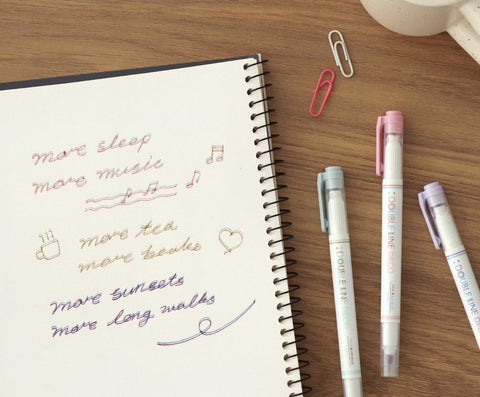 more sleep
more music
more tea
more books
more sunsets
more long walks
DOUBLE LINE DECO
DOUBLE LINE DECO
DOUBLE LINE DE